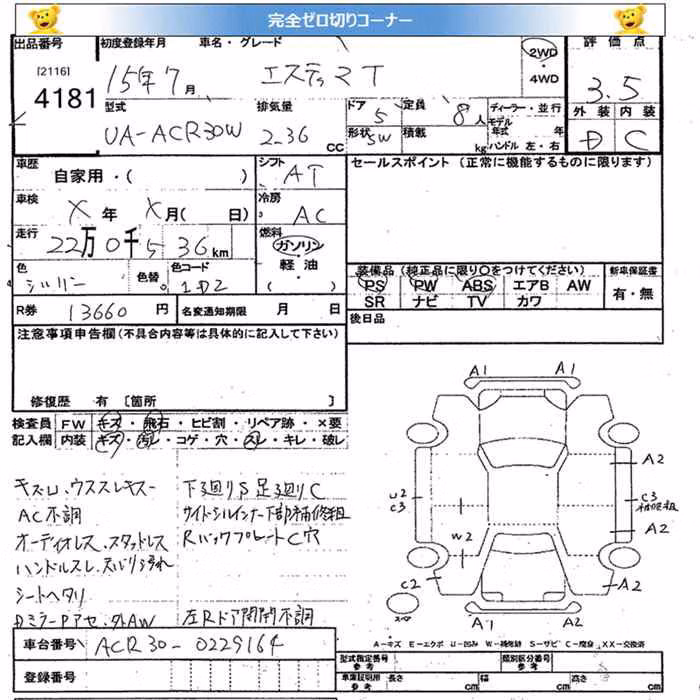 完全ゼロ切りコーナー
出品番号 初度登録年月 車名・グレード 評価点
[2116] 4181 15年7月 エスティマT 2WD・4WD 3.5
型式 排気量 ドア 5 定員 8人 ディーラー・並行 外装 内装
UA-ACR30W 2.36 CC 形状 SW 積載 kg モデル年式 年 ハンドル 左・右 D C
車歴 自家用・( ) シフト AT セールスポイント (正常に機能するものに限ります)
車検 X年 X月( 日) 冷房 AC
走行 22万0千536km 燃料 ガソリン・軽油・( )
色 シルバー 色替 色コード 1D2 装備品(純正品に限り○をつけてください) 新車保証書
PS PW ABS エアB AW 有・無
SR ナビ TV カワ
R券 13660円 名変通知期限 月 日 後日品
注意事項申告欄(不具合内容等は具体的に記入して下さい)
修復歴 有 〔箇所 〕
検査員 FW キズ・飛石・ヒビ割・リペア跡・×要
記入欄 内装 キズ・汚レ・コゲ・穴・スレ・キレ・破レ
キズU、ウススレキズー 下廻りS足廻りC
AC不調 サイドシルインナー下部補修粗
オーディオレス、スタッドレス RバックプレートC穴
ハンドルスレ、天バリ汚れ
シートヘタリ
DミラーPアセ、外AW 左Rドア開閉不調
A1 A1
A2
U2 C3 C3 補修粗
A2
W2
C2 A2
スペア A1 A2
A-キズ E-エクボ U-凹み W-補修跡 S-サビ C-腐食 XX-交換済
車台番号 ACR30-0229164
型式指定番号 参考 類別区分番号 参考
登録番号 車庫証明用 参考 長さ cm 幅 cm 高さ cm